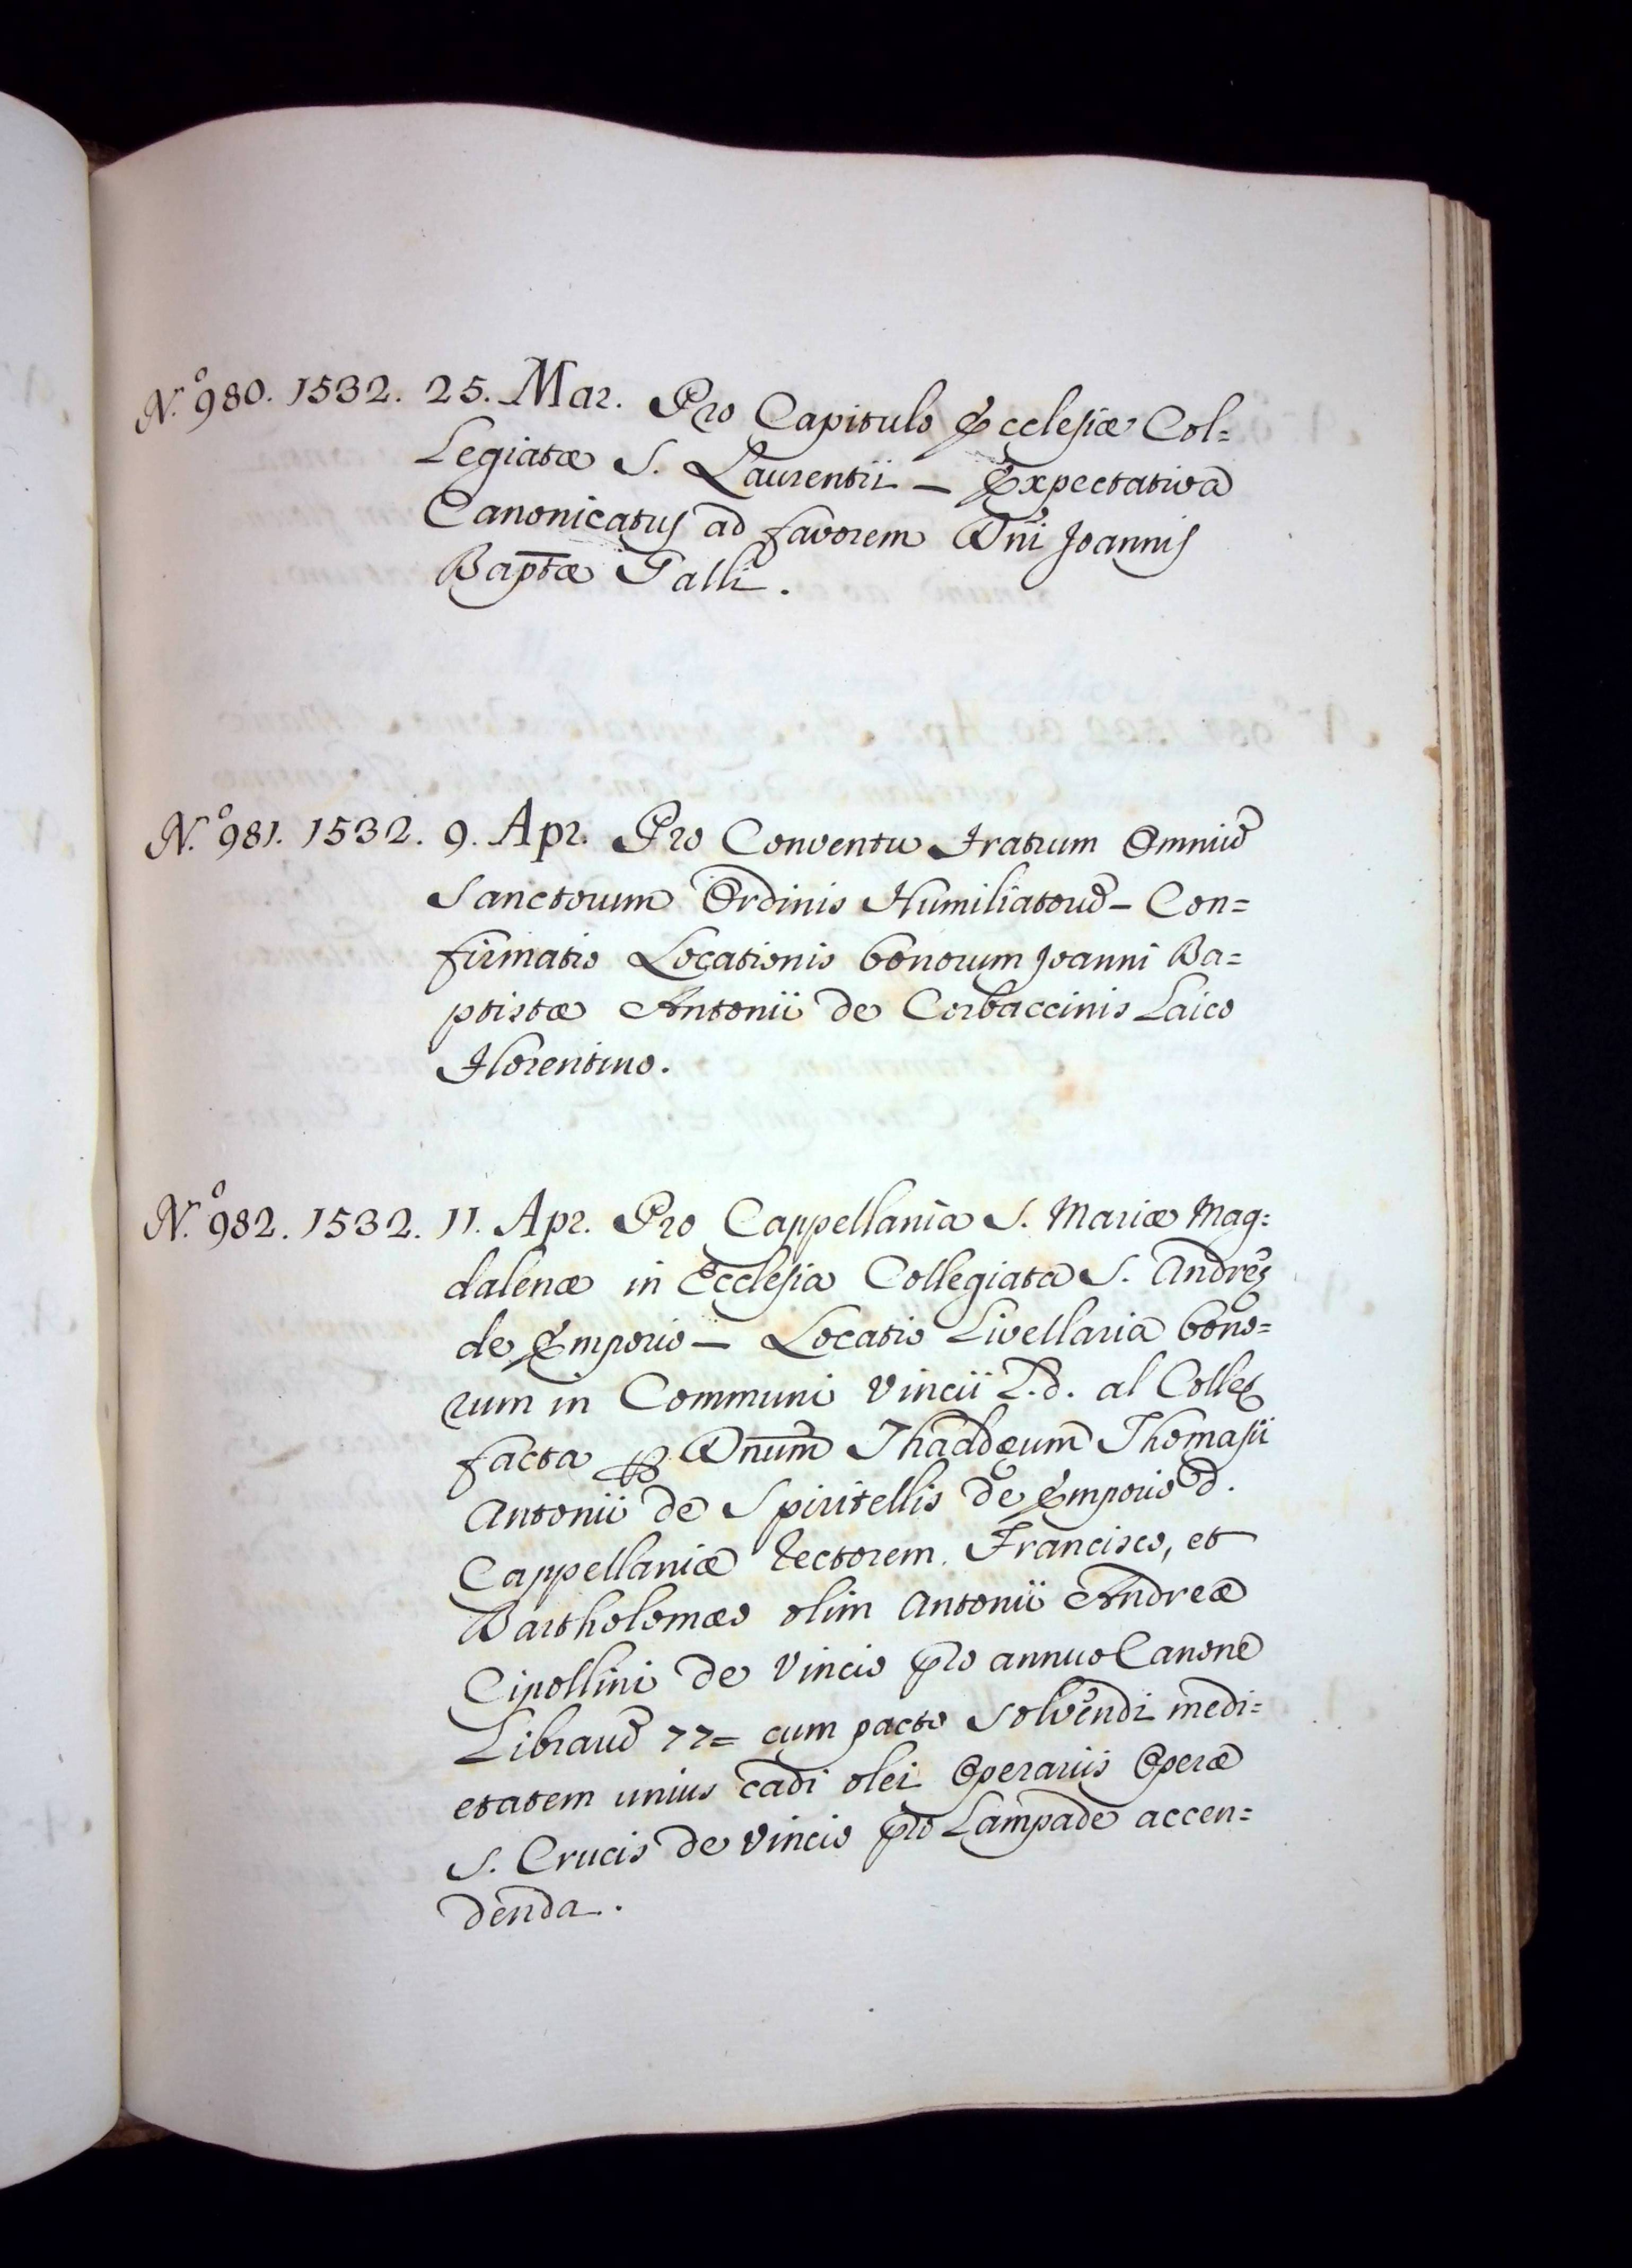 N.º 980. 1532. 25. Mar. Pro Capitulo Ecclesiæ Col=
Legiatæ S. Laurentii — Expectativa
Canonicatus ad favorem Dni Joannis
Baptæ Galli.
N.º 981. 1532. 9. Apr. Pro Conventu Fratrum Omniũ
Sanctorum Ordinis Humiliatorũ — Con=
firmatio Locationis bonorum Joanni Ba=
ptistæ Antonii de Corbaccinis Laico
Florentino.
N.º 982. 1532. 11. Apr. Pro Cappellania S. Mariæ Mag=
dalenæ in Ecclesia Collegiata S. Andreę
de Emporio — Locatio Livellaria bono=
rum in Communi Vincii L.d. al Colle
facta p Dnum Thaddeum Thomasii
Antonii de Spiritellis de Emporio d.
Cappellaniæ Rectorem. Francisco, et
Bartholomæo olim Antonii Andreæ
Cipollini de Vincio pro annuo Canone
Librarũ 77= cum pacto Solvendi medi=
etatem unius cadi olei Operariis Operæ
S. Crucis de Vincio pro Lampade accen=
denda.